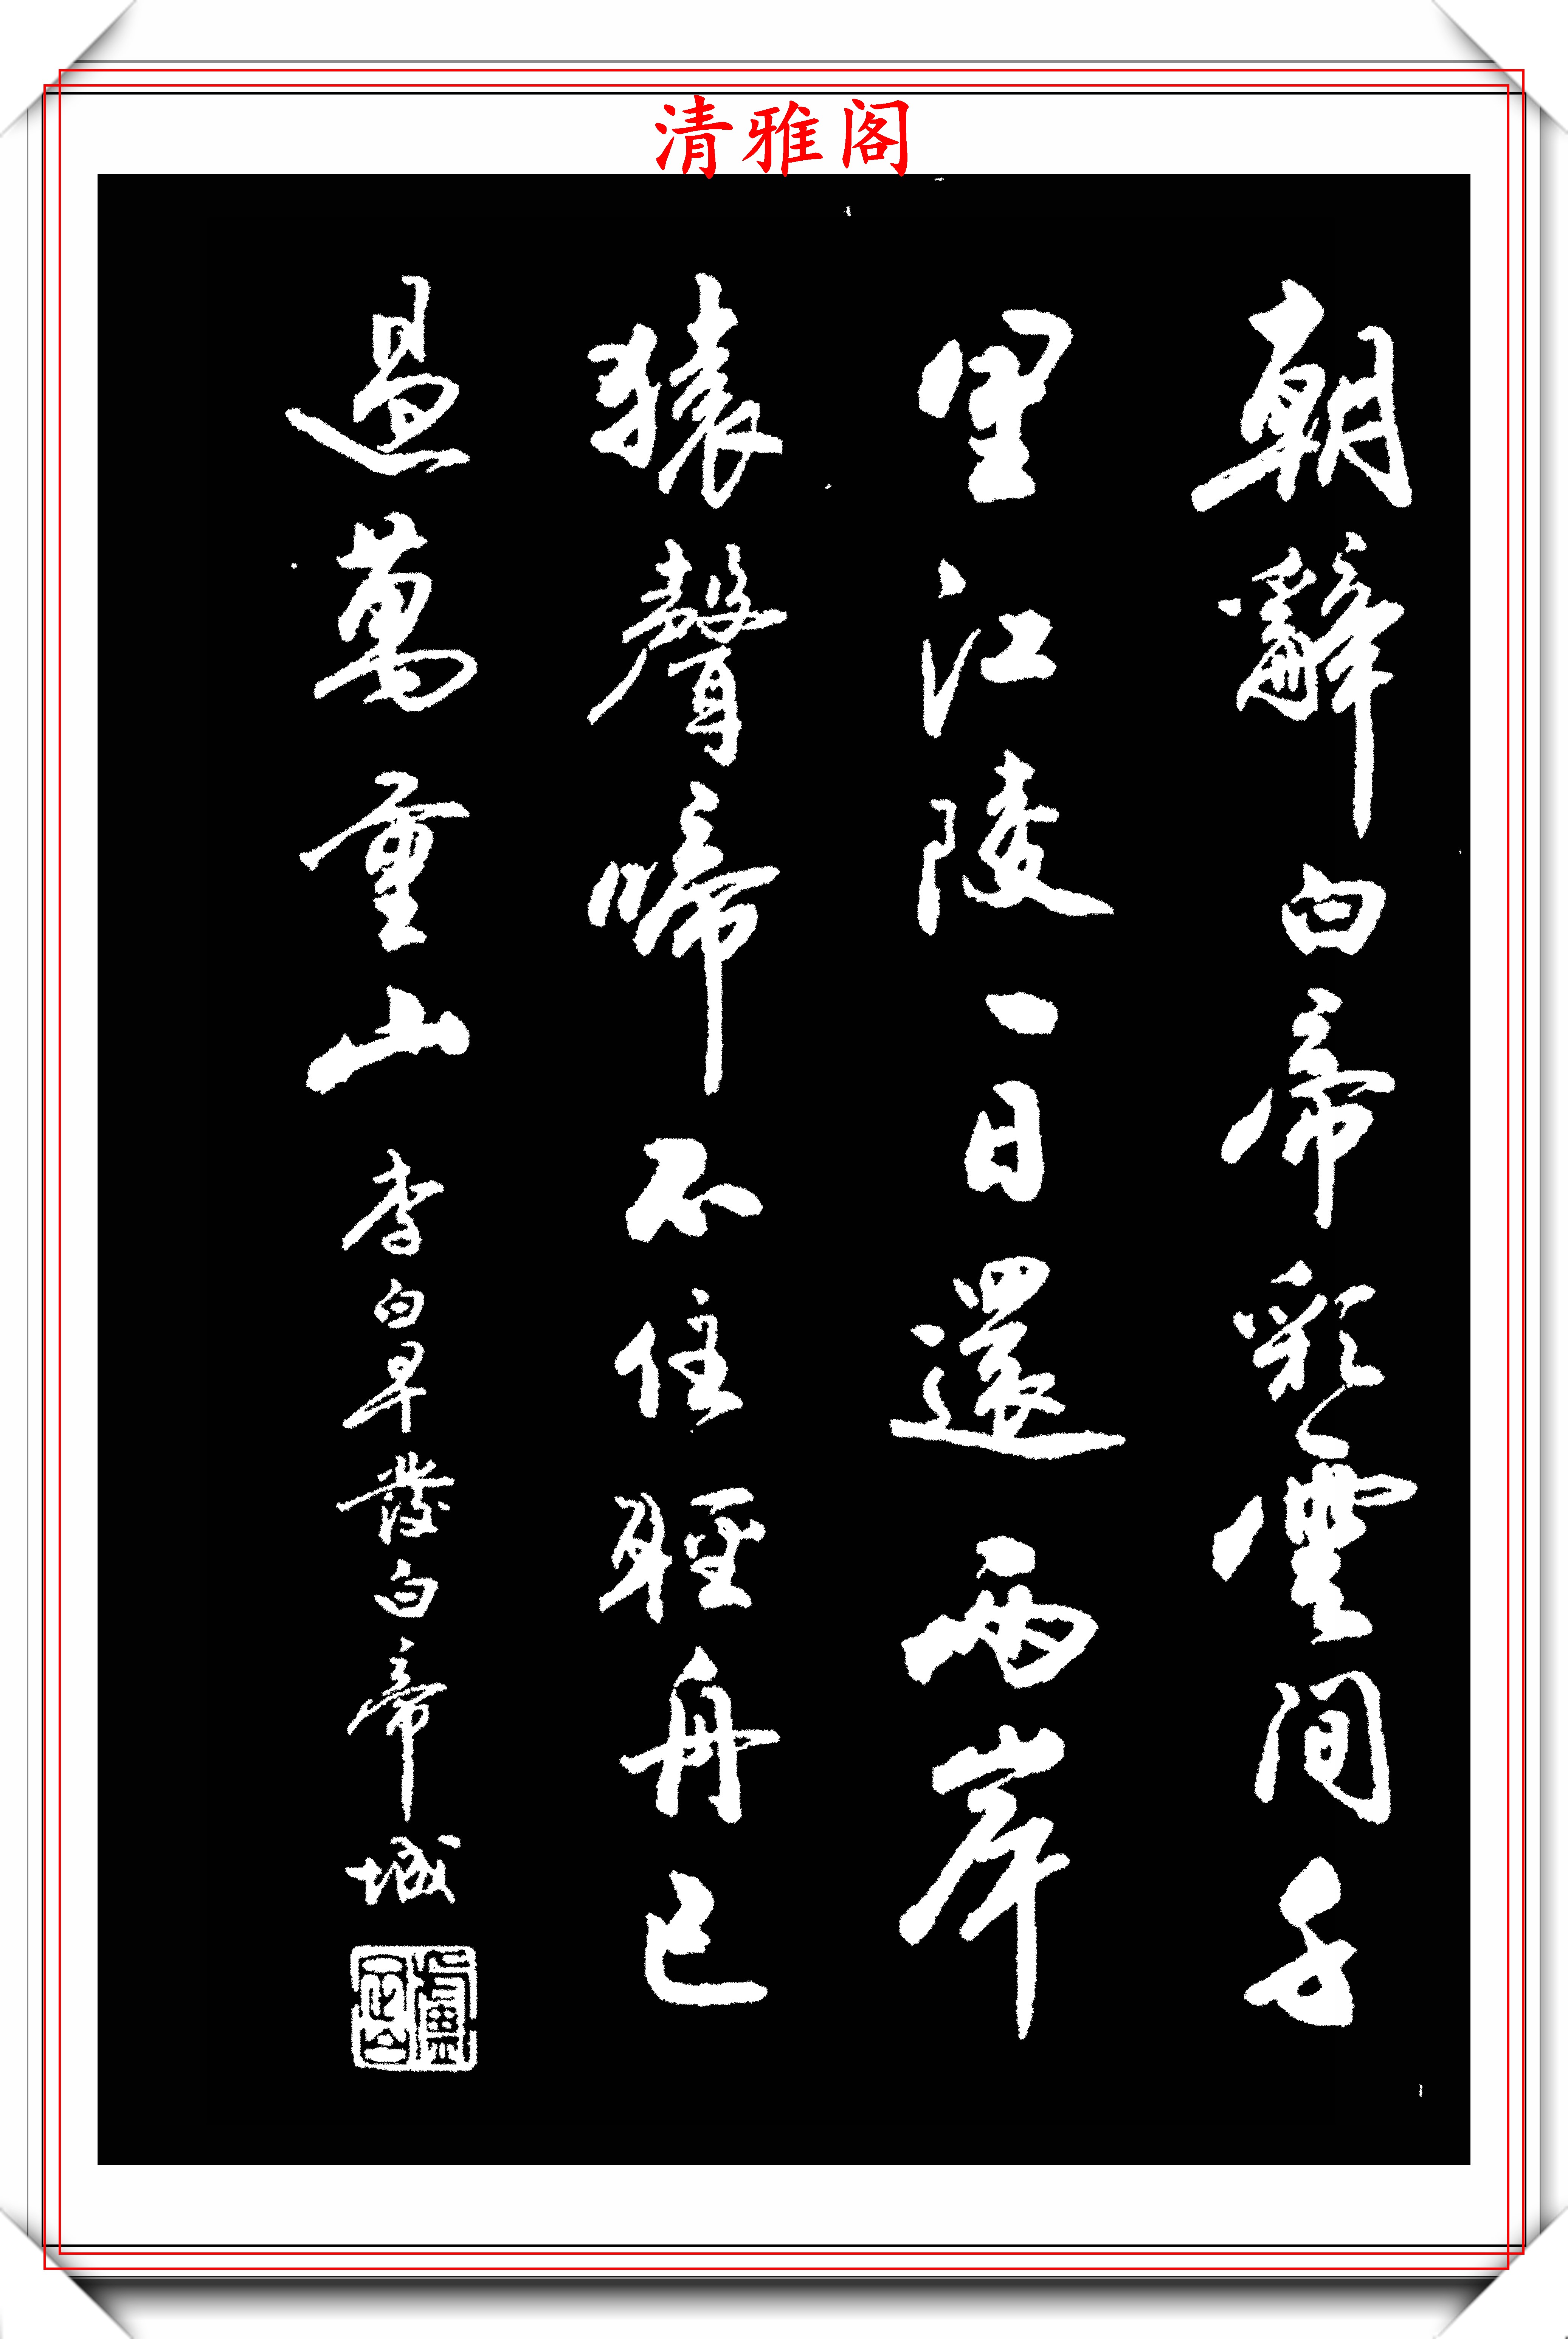 清雅阁
朝辭白帝彩雲間千
里江陵一日還兩岸
猿聲啼不住輕舟已
過萬重山 李白早發白帝城